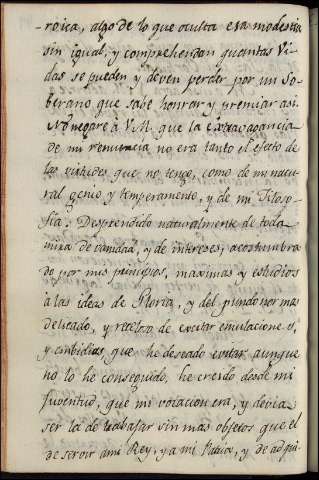 -roica, algo de lo que oculta esa modestia
sin igual, y comprehendan quantas Vi-
das se pueden y deven perder por un So-
berano que sabe honrar y premiar asi.
No negare à V.M. que la extravagancia
de mi renuncia no era tanto el efecto de
las virtudes que no tengo, como de mi natu-
ral genio y temperamento, y de mi Filoso-
fia. Desprendido naturalmente de toda
mira de vanidad, y de intereses, acostumbra-
do por mis principios, maximas y estudios
à las ideas de Gloria, y del pundonor mas
delicado, y rezeloso de excitar emulaciones,
y embidias que he deseado evitar aunque
no lo he conseguido, he creido desde mi
Juventud, que mi vocacion era, y devia
ser la de trabajar sin mas objetos que el
de servir à mi Rey, y a mi Patria, y de adqui-